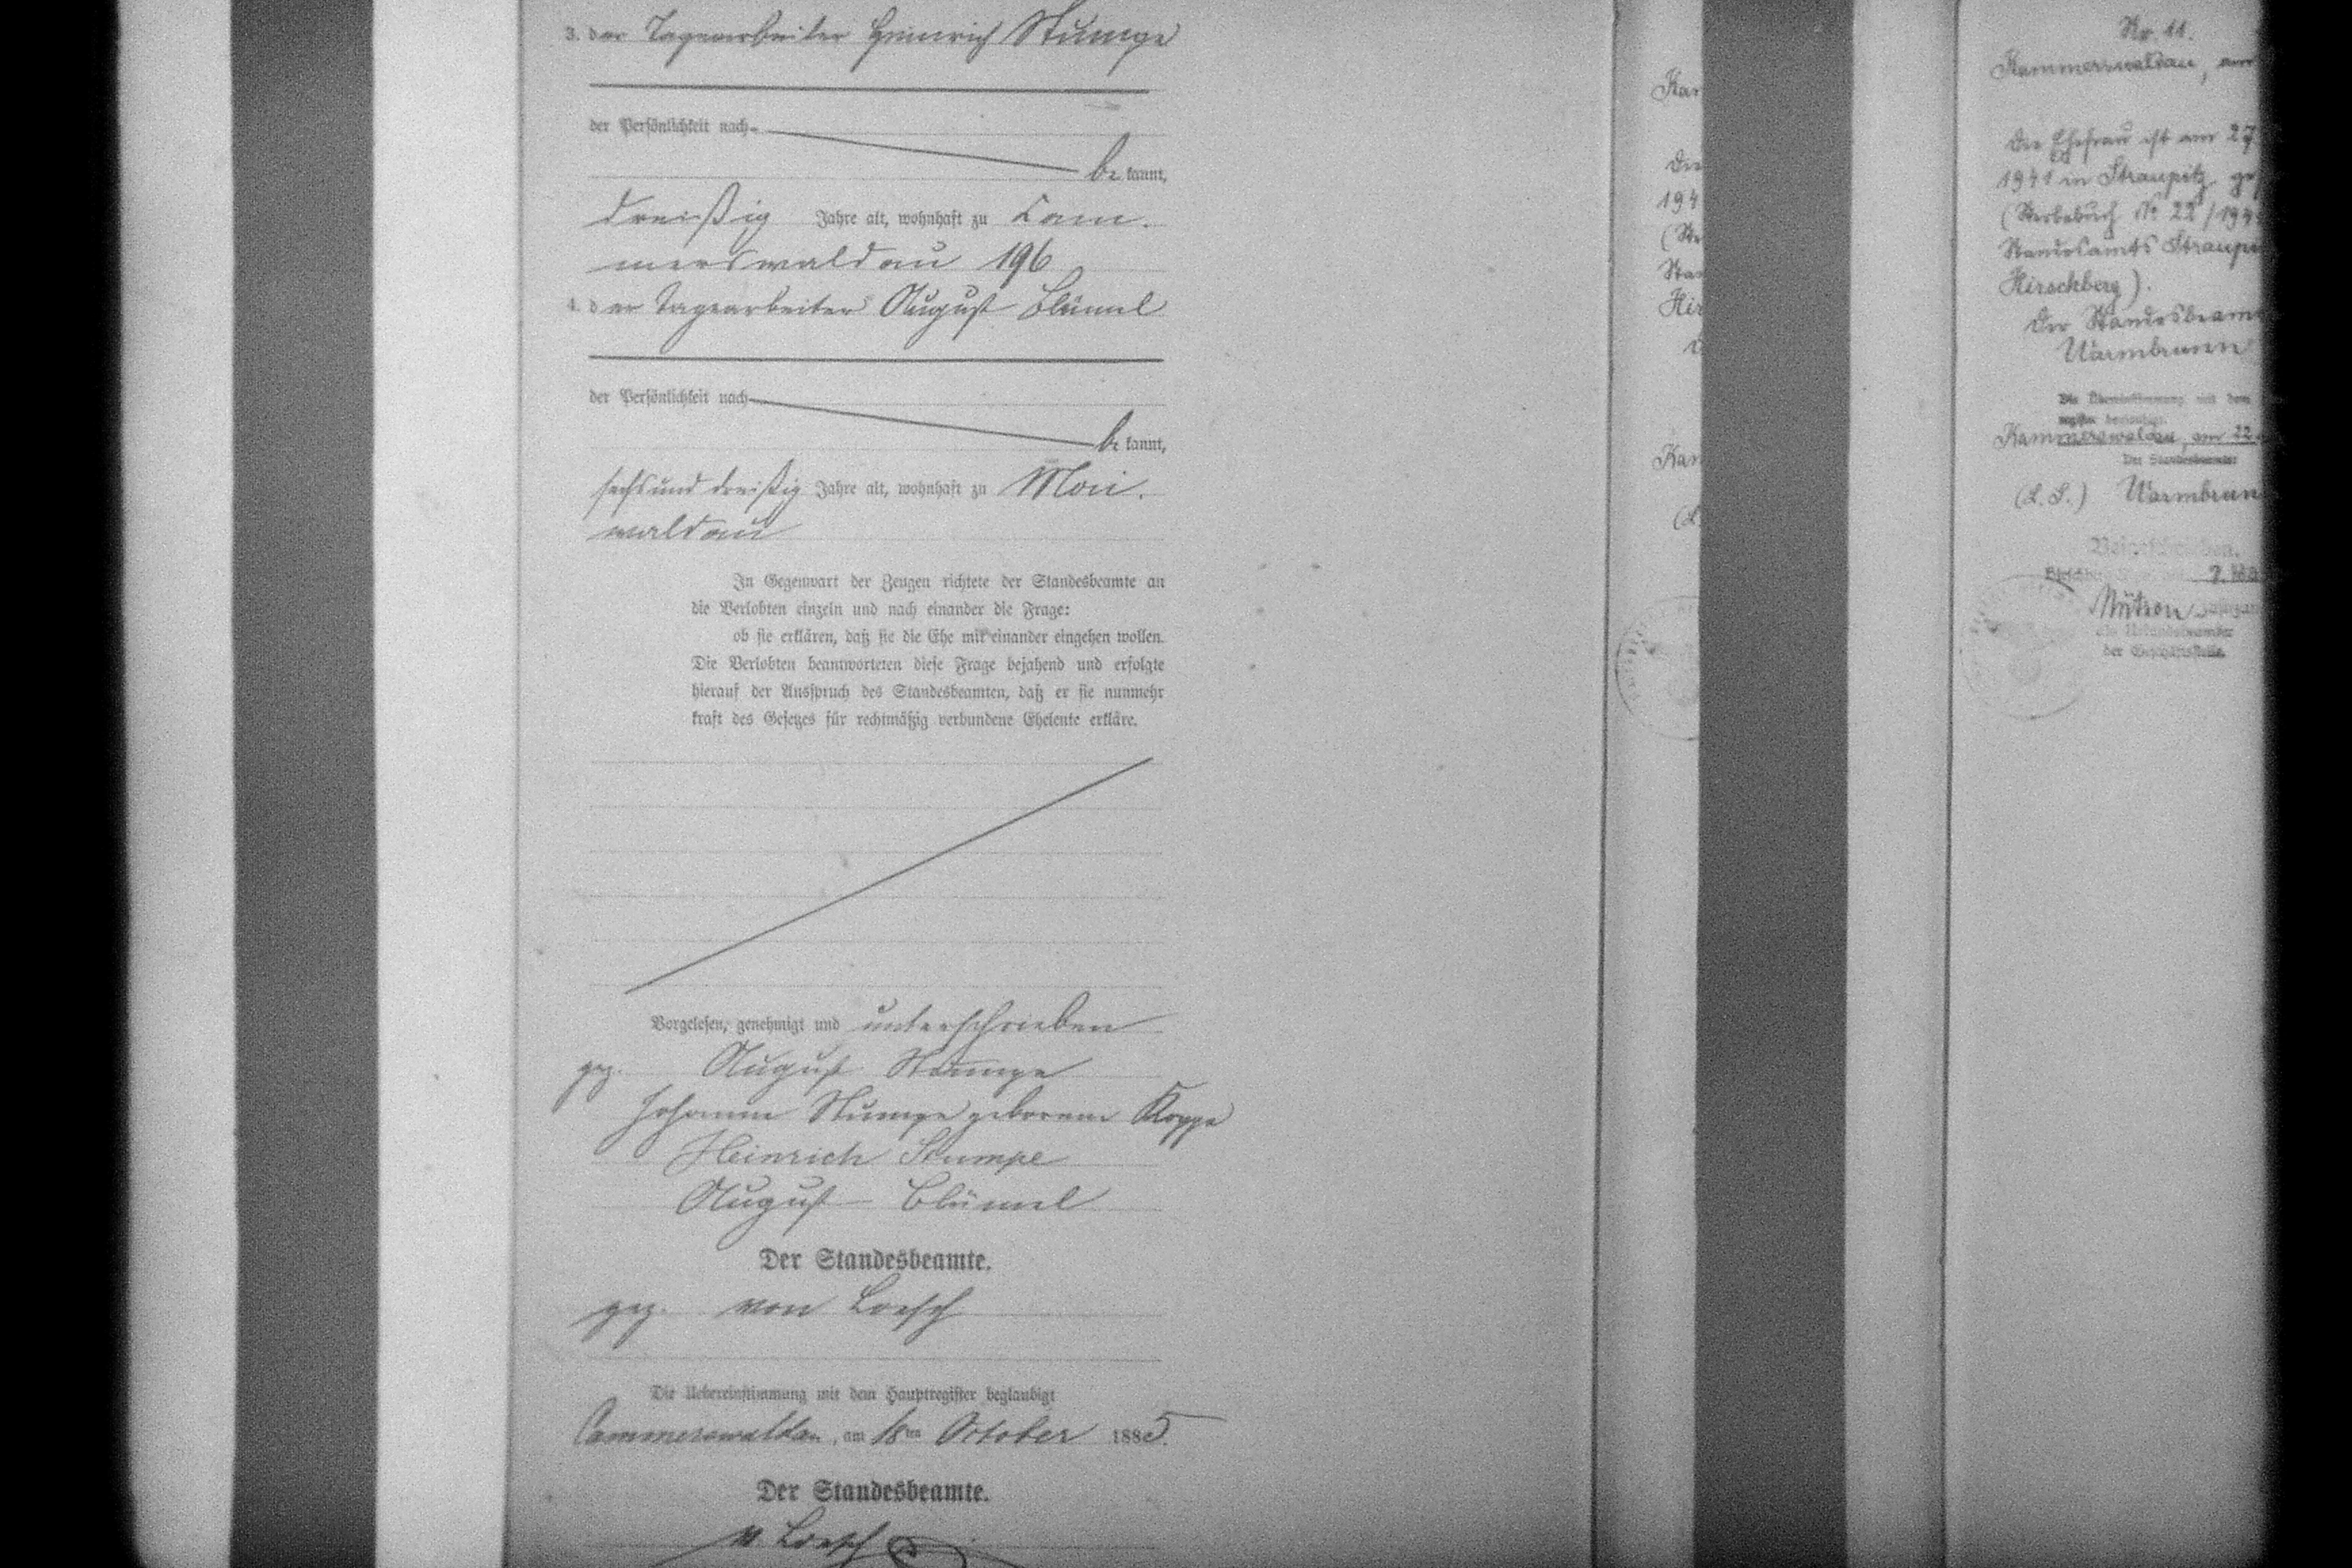 3. der Tagearbeiter Heinrich Stumpe
der Persönlichkeit nach
be kannt,
dreißig Jahre alt, wohnhaft zu Cam-
merswaldau 196
4. der Tagearbeiter August Blümel
der Persönlichkeit nach
be kannt,
sechsund dreißig Jahre alt, wohnhaft zu Mai-
waldau
In Gegenwart der Zeugen richtete der Standesbeamte an
die Verlobten einzeln und nach einander die Frage:
ob sie erklären, daß sie die Ehe mit einander eingehen wollen.
Die Verlobten beantworteten diese Frage bejahend und erfolgte
hierauf der Ausspruch des Standesbeamten, daß er sie nunmehr
kraft des Gesetzes für rechtmäßig verbundene Eheleute erkläre.
Vorgelesen, genehmigt und unterschrieben
gez. August Stumpe
Johanne Stumpe geborene Koppe
Heinrich Stumpe
August Blümel
Der Standesbeamte.
gez. von Loesch
Die Uebereinstimmung mit dem Hauptregister beglaubigt
Cammerswaldau, am 18ten October 1885.
Der Standesbeamte.
v. Loesch
Kam
Die
194
(Ste
Stan
Hir
Kam
Nr. 11.
Kammerswaldau, am
Die Ehefrau ist am 27
1941 in Straupitz ge
(Sterbebuch Nr 22/194
Standesamts Straupi
Hirschberg).
Der Standesbeam
Warmbrunn
Die Übereinstimmung mit dem
Kammerswaldau, am 22.
Der Standesbeamte
(L. S.) Warmbrun
Beigeschrieben.
der Geschäftsstelle.